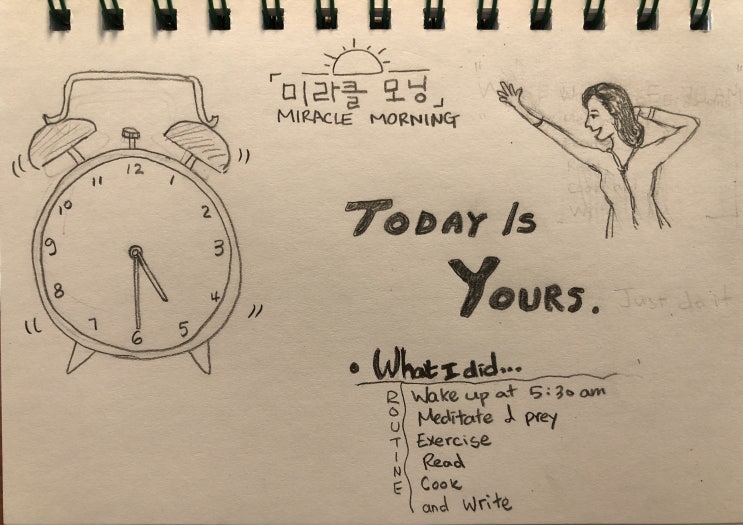 「미라클 모닝」
MIRACLE MORNING
12
11 1
10 2
9 3
8 4
7 5
6
TODAY IS
YOURS.
Just do it
• What I did...
ROUTINE
Wake up at 5:30 am
Meditate & prey
Exercise
Read
Cook
and Write